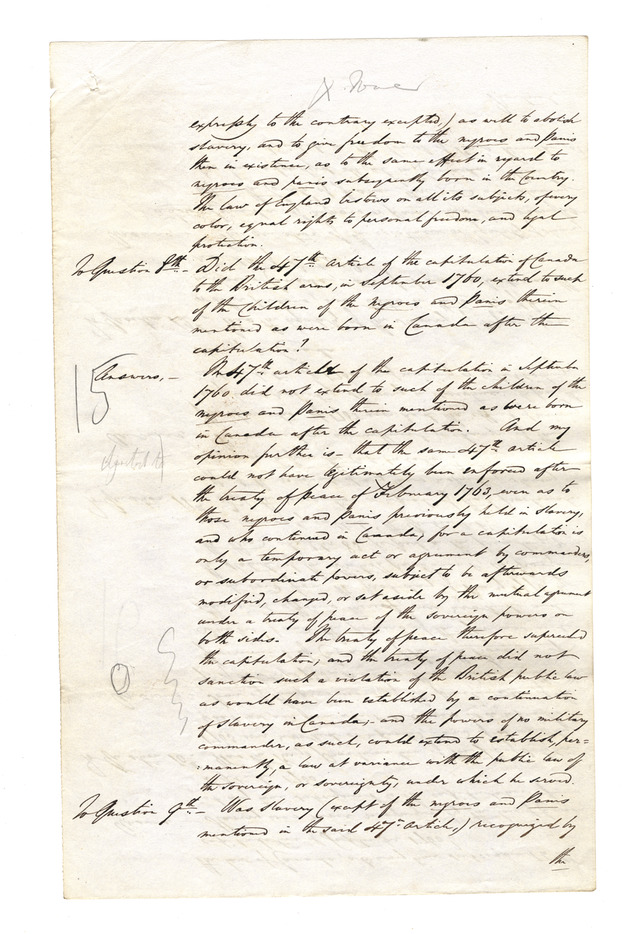 expressly to the contrary excepted) as well to abolish
slavery, and to give freedom to the negroes and Panis
then in existence, as to the same effect in regard to
negroes and panis subsequently born in the Country.
The law of England bestows on all its subjects, of every
color, equal rights to personal freedom, and legal
protection.
To Question 8th.- Did the 47th article of the capitulation of Canada
to the British arms, in September 1760, extend to such
of the Children of the negroes and Panis therein
mentioned as were born in Canada after the
capitulation?
15
Answers,- The 47th article of the capitulation in September
1760, did not extend to such of the children of the
negroes and Panis therein mentioned as were born
in Canada after the capitulation. And my
opinion further is - that the same 47th article
Objected to
could not have legitimately been enforced after
the treaty of peace of February 1763, even as to
those negroes and Panis previously held in slavery,
and who continued in Canada, for a capitulation is
only a temporary act or agreement by commanders,
or subordinate powers, subject to be afterwards
modified, changed, or set aside by the mutual agreement
under a treaty of peace of the sovereign powers on
both sides. The treaty of peace therefore superseded
the capitulation, and the treaty of peace did not
sanction such a violation of the British public law
as would have been established by a continuation
of slavery in Canada;- and the powers of no military
commander, as such, could extend to establish, per=
=manently, a law at variance with the public law of
the sovereign, or sovereignty, under which he served.
To Question 9th.- Was slavery (except of the negroes and Panis
mentioned in the said 47th article,) recognized by
the